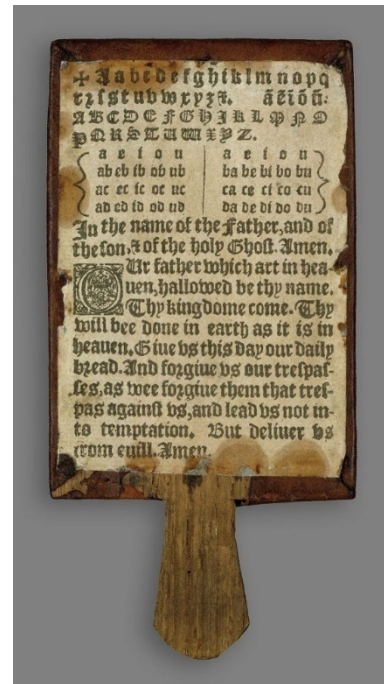 ✠ Aabcdefghiklmnopq
rꝛſstuvwxyzꝫ⁊. ãẽĩõũ:
ABCDEFGHIJKLMNO
PQRSTUWXYZ.
a e i o u | a e i o u
ab eb ib ob ub | ba be bi bo bu
ac ec ic oc uc | ca ce ci co cu
ad ed id od ud | da de di do du
In the name of the Father, and of
the ſon, ⁊ of the holy Ghoſt. Amen.
OUr father which art in hea-
uen, hallowed be thy name.
Thy kingdome come. Thy
will bee done in earth as it is in
heauen. Giue vs this day our daily
bread. And forgiue vs our treſpaſ-
ſes, as wee forgiue them that treſ-
pas againſt vs, and lead vs not in-
to temptation. But deliuer vs
from euill. Amen.